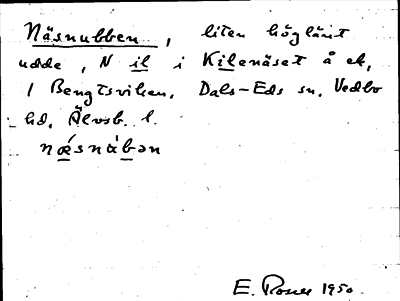 Näsnubben, liten höglänt
udde, N il i Kilenäset å ek,
i Bengtsviken, Dals-Eds sn, Vedbo
hd, Älvsb. l.
nǽsnàbən
E. Rosell 1950